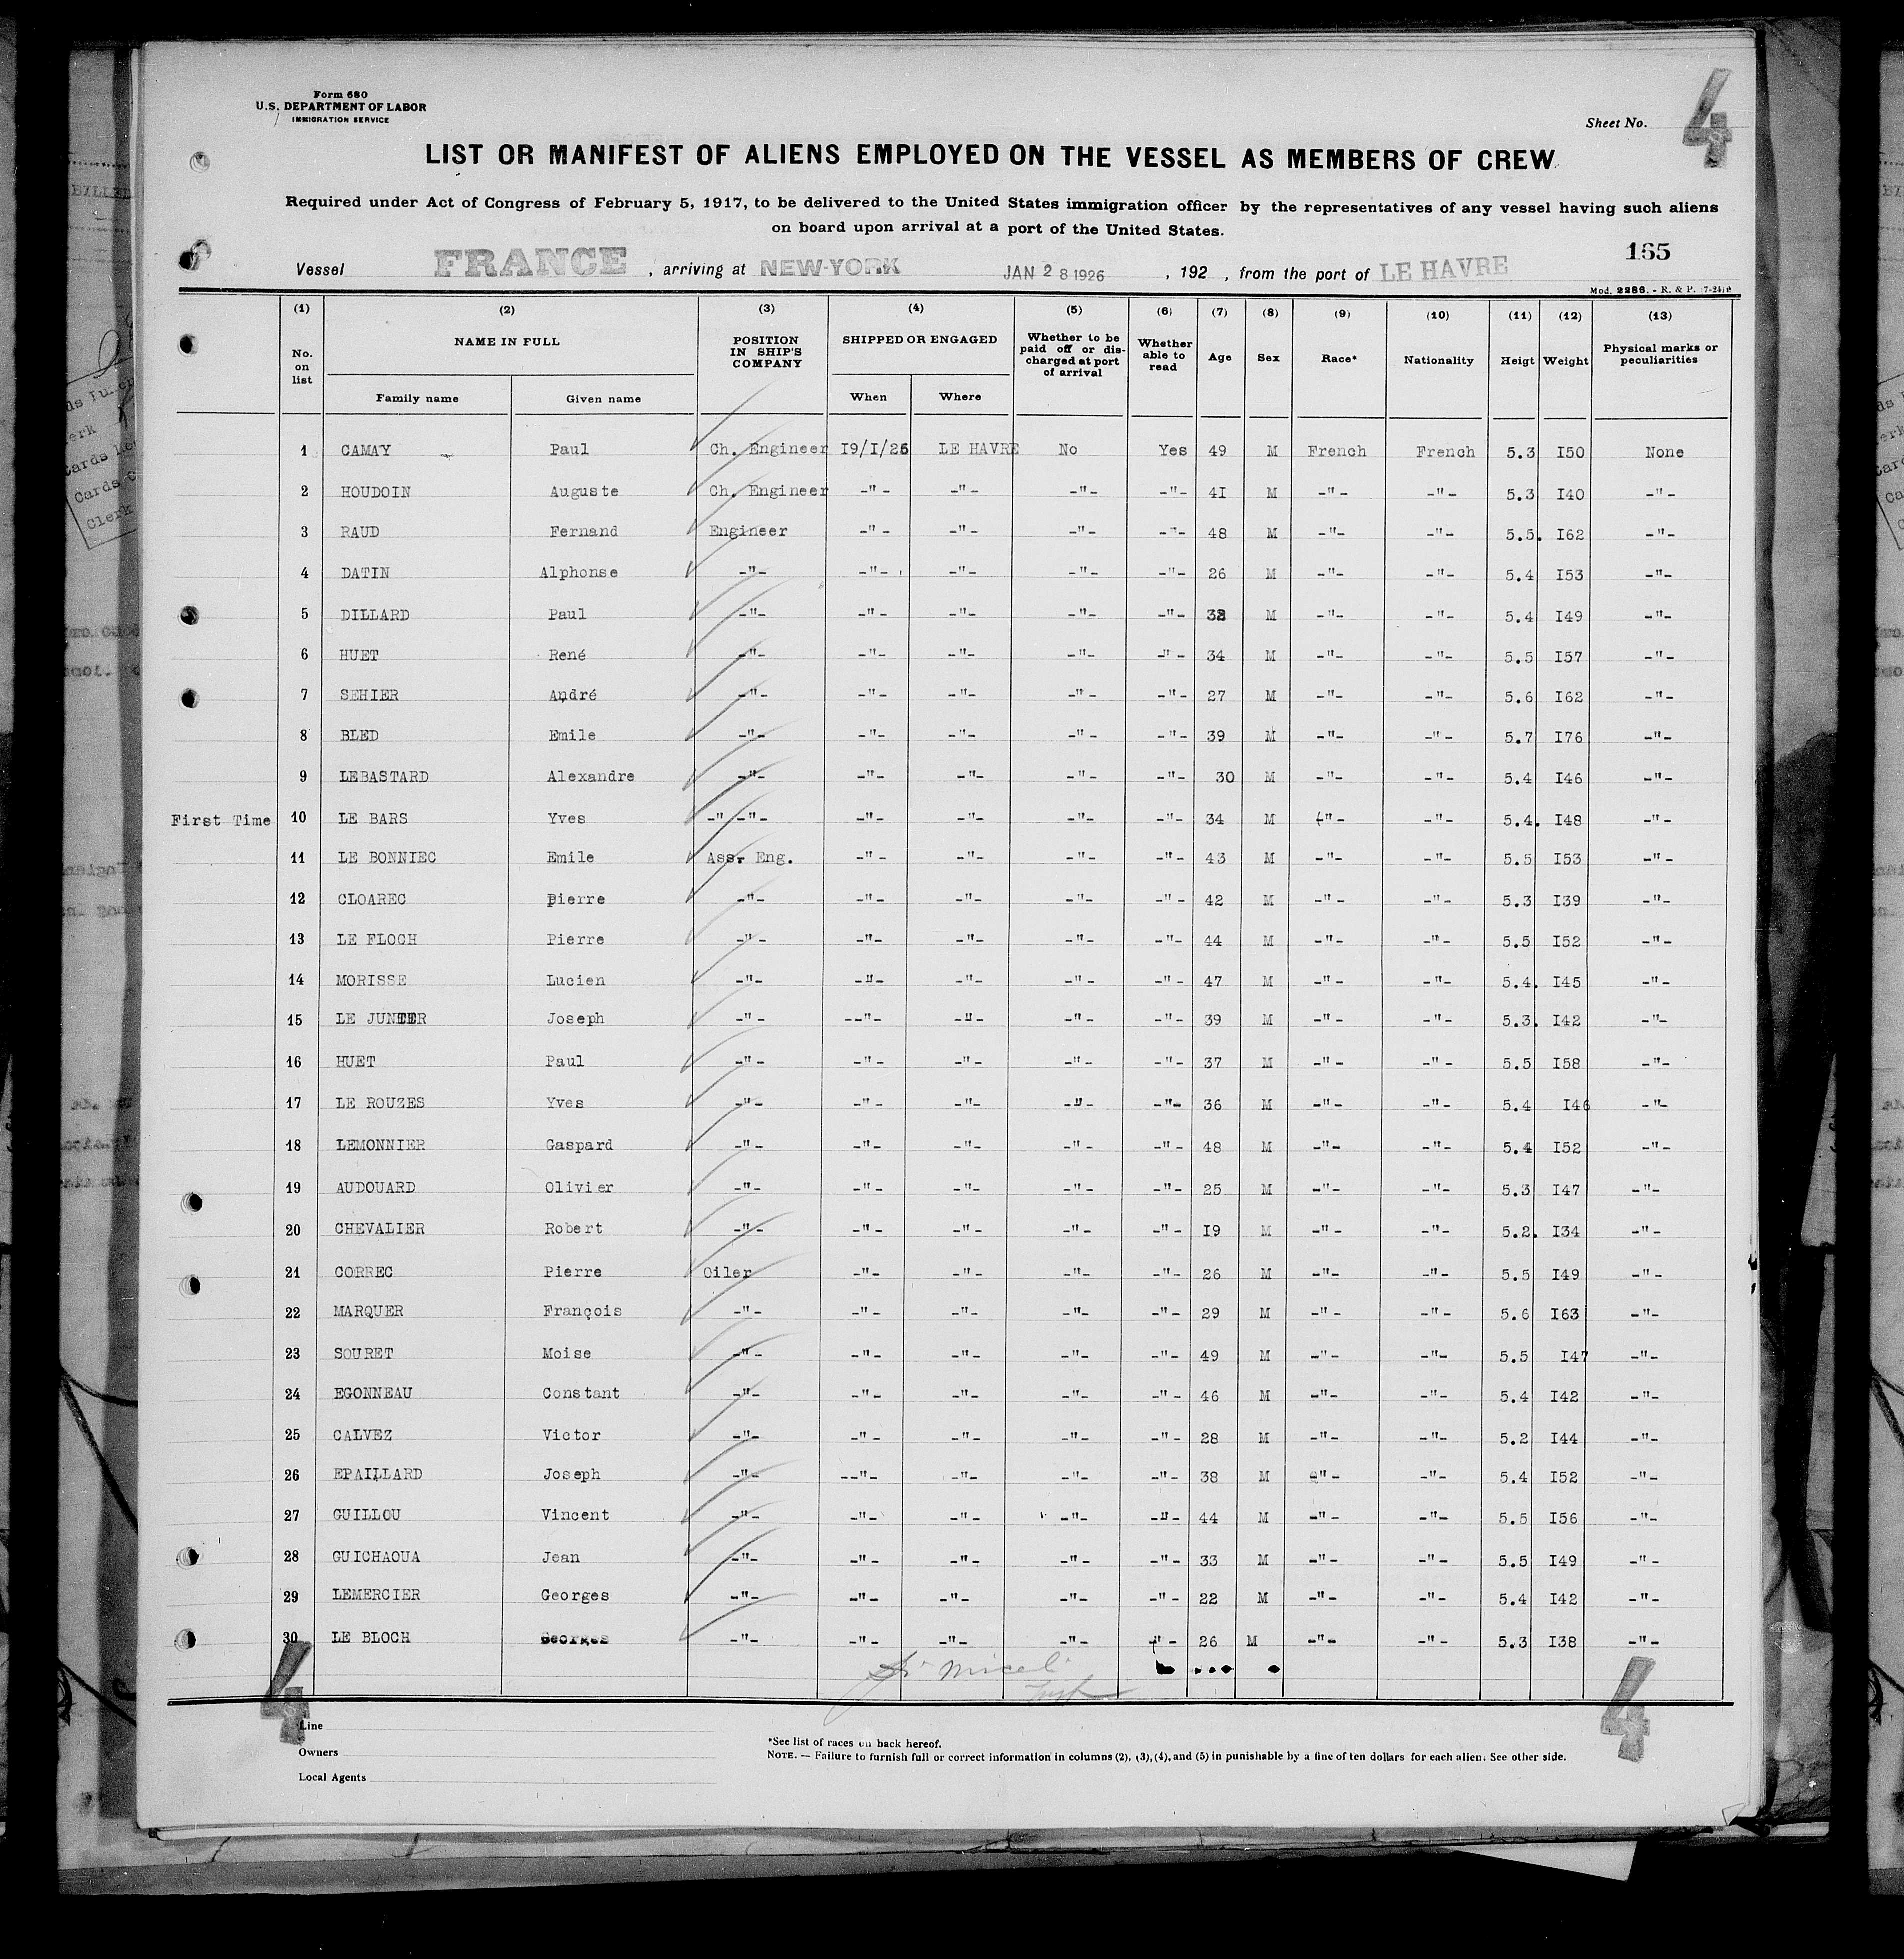 Form 680
U.S. DEPARTMENT OF LABOR
IMMIGRATION SERVICE
Sheet No. 4
LIST OR MANIFEST OF ALIENS EMPLOYED ON THE VESSEL AS MEMBERS OF CREW
Required under Act of Congress of February 5, 1917, to be delivered to the United States immigration officer by the representatives of any vessel having such aliens
on board upon arrival at a port of the United States.
165
Vessel FRANCE , arriving at NEW-YORK JAN 28 1926 , 192 , from the port of LE HAVRE
Mod. 2286. - R. & P.
(1) (2) (3) (4) (5) (6) (7) (8) (9) (10) (11) (12) (13)
No. on list NAME IN FULL POSITION IN SHIP'S COMPANY SHIPPED OR ENGAGED Whether to be paid off or discharged at port of arrival Whether able to read Age Sex Race* Nationality Heigt Weight Physical marks or peculiarities
Family name Given name When Where
1 CAMAY Paul Ch. Engineer I9/I/26 LE HAVRE No Yes 49 M French French 5.3 I50 None
2 HOUDOIN Auguste Ch. Engineer -"- -"- -"- -"- 4I M -"- -"- 5.3 I40 -"-
3 RAUD Fernand Engineer -"- -"- -"- -"- 48 M -"- -"- 5.5. I62 -"-
4 DATIN Alphonse -"- -"- -"- -"- -"- 26 M -"- -"- 5.4 I53 -"-
5 DILLARD Paul -"- -"- -"- -"- -"- M -"- -"- 5.4 I49 -"-
6 HUET René -"- -"- -"- -"- -"- 34 M -"- -"- 5.5 I57 -"-
7 SEHIER André -"- -"- -"- -"- -"- 27 M -"- -"- 5.6 I62 -"-
8 BLED Emile -"- -"- -"- -"- -"- 39 M -"- -"- 5.7 I76 -"-
9 LEBASTARD Alexandre -"- -"- -"- -"- -"- 30 M -"- -"- 5.4 I46 -"-
First Time 10 LE BARS Yves -"-"- -"- -"- -"- -"- 34 M -"- -"- 5.4. I48 -"-
11 LE BONNIEC Emile Ass. Eng. -"- -"- -"- -"- 43 M -"- -"- 5.5 I53 -"-
12 CLOAREC Pierre -"- -"- -"- -"- -"- 42 M -"- -"- 5.3 I39 -"-
13 LE FLOCH Pierre -"- -"- -"- -"- -"- 44 M -"- -"- 5.5 I52 -"-
14 MORISSE Lucien -"- -"- -"- -"- -"- 47 M -"- -"- 5.4. I45 -"-
15 LE JUNTER Joseph -"- --"- -"- -"- -"- 39 M -"- -"- 5.3. I42 -"-
16 HUET Paul -"- -"- -"- -"- -"- 37 M -"- -"- 5.5 I58 -"-
17 LE ROUZES Yves -"- -"- -"- -"- -"- 36 M -"- -"- 5.4 I46 -"-
18 LEMONNIER Gaspard -"- -"- -"- -"- -"- 48 M -"- -"- 5.4 I52 -"-
19 AUDOUARD Olivier -"- -"- -"- -"- -"- 25 M -"- -"- 5.3 I47 -"-
20 CHEVALIER Robert -"- -"- -"- -"- -"- I9 M -"- -"- 5.2. I34 -"-
21 CORREC Pierre Oiler -"- -"- -"- -"- 26 M -"- -"- 5.5 I49 -"-
22 MARQUER François -"- -"- -"- -"- -"- 29 M -"- -"- 5.6 I63 -"-
23 SOURET Moise -"- -"- -"- -"- -"- 49 M -"- -"- 5.5 I47 -"-
24 EGONNEAU Constant -"- -"- -"- -"- -"- 46 M -"- -"- 5.4 I42 -"-
25 CALVEZ Victor -"- -"- -"- -"- -"- 28 M -"- -"- 5.2 I44 -"-
26 EPAILLARD Joseph -"- --"- -"- -"- -"- 38 M -"- -"- 5.4 I52 -"-
27 GUILLOU Vincent -"- -"- -"- -"- -"- 44 M -"- -"- 5.5 I56 -"-
28 GUICHAOUA Jean -"- -"- -"- -"- -"- 33 M -"- -"- 5.5 I49 -"-
29 LEMERCIER Georges -"- -"- -"- -"- -"- 22 M -"- -"- 5.4 I42 -"-
30 LE BLOCH Georges -"- -"- -"- -"- -"- 26 M -"- -"- 5.3 I38 -"-
4 4
Line
Owners
Local Agents
*See list of races on back hereof.
NOTE. — Failure to furnish full or correct information in columns (2), (3), (4), and (5) in punishable by a fine of ten dollars for each alien. See other side.